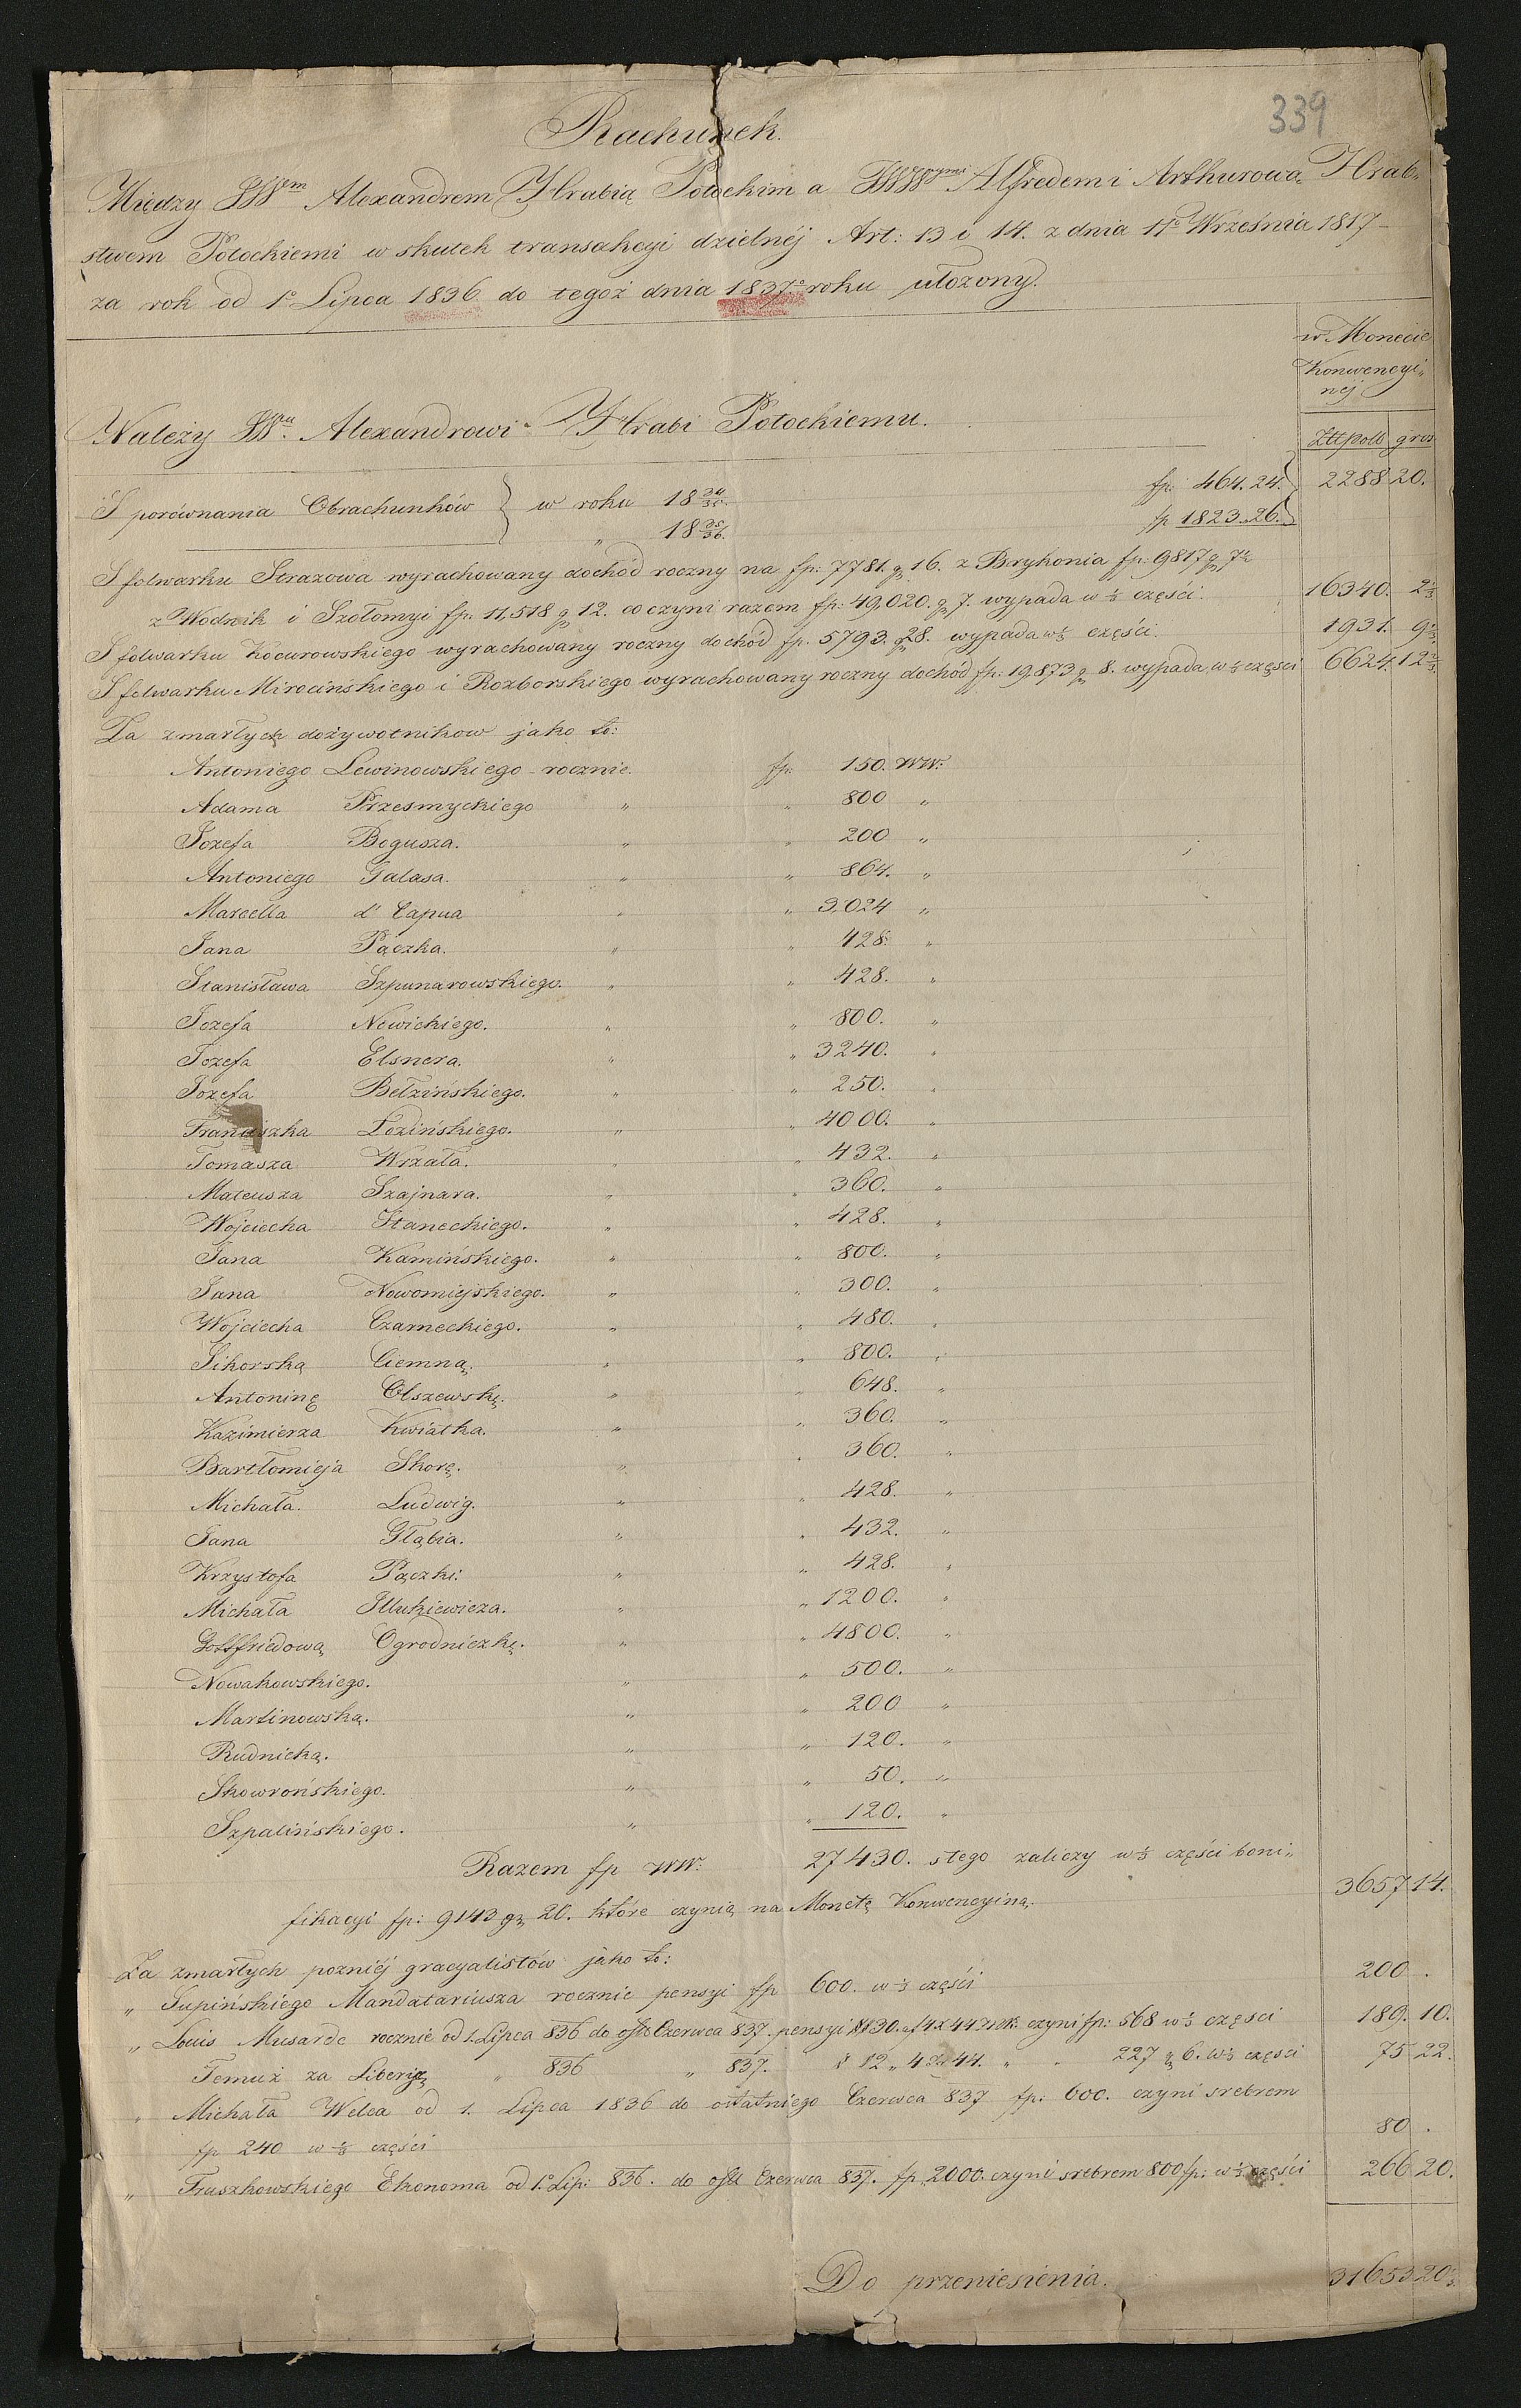 339
Rachunek.
Między JWm Alexandrem Hrabią Potockim a JWWymi Alfredem i Arthurową Hrab-
stwem Potockiemi w skutek transakcyi dzielnéj Art: 13 i 14. z dnia 11o Września 1817
za rok od 1o Lipca 1836 do tegoż dnia 1837o roku ułożony.
w Monecie
Konwencyi„
néj
Należy JWu. Alexandrowi Hrabi Potockiemu.
Złtpolls gros
S porównania Obrachunków } w roku 18 34/35. fp. 464. 24. } 2288 20.
„ 18 35/36. fp 1823. 26. }
S folwarku Strazowa wyrachowany dochód roczny na fp: 7781. g. 16. z Brykonia fp: 9817 g. 7
z Wodnik i Szołomyi fp. 11,518 g. 12. co czyni razem fp: 49,020. g. 7. wypada w 1/3 części. 16340. 2 1/3.
S folwarku Kocurowskiego wyrachowany roczny dochód fp. 5793. g. 28. wypada w 1/3 części. 1931. 9 1/3.
S folwarku Mirocińskiego i Rozborskiego wyrachowany roczny dochód fp: 19,873 g. 8. wypada w 1/3 części 6624. 12 2/3.
Za zmarłych dożywotnikow jako to:
Antoniego Lewinowskiego rocznie. fp. 150. WW:
Adama Przesmyckiego „ „ 800 „
Jozefa Bogusza. „ „ 200 „
Antoniego Galasa. „ „ 864. „
Marcella d' Capua „ „ 3,024 „
Jana Pączka. „ „ 428. „
Stanisława Szpunarowskiego. „ „ 428. „
Jozefa Nowickiego. „ „ 800. „
Jozefa Elsnera. „ „ 3240. „
Jozefa Bełzińskiego. „ „ 250. „
Franciszka Łozińskiego. „ „ 4000. „
Tomasza Wrzała. „ „ 432. „
Mateusza Szajnara. „ „ 360. „
Wojciecha Staneckiego. „ „ 428. „
Jana Kamińskiego. „ „ 800. „
Jana Nowomiejskiego. „ „ 300. „
Wojciecha Czarneckiego. „ „ 480. „
Sikorską Ciemną. „ „ 800. „
Antoninę Olszewskę. „ „ 648. „
Kazimierza Kwiatka. „ „ 360. „
Bartłomieja Skorę. „ „ 360. „
Michała. Ludwig. „ „ 428. „
Jana Głąbia. „ „ 432. „
Krzysztofa Pączki. „ „ 428. „
Michała Illukiewicza. „ „ 1200. „
Gottfriedową Ogrodniczkę. „ „ 4800. „
Nowakowskiego. „ „ 500. „
Martinowską. „ „ 200 „
Rudnicką. „ „ 120. „
Skowrońskiego. „ „ 50. „
Szpalińskiego. „ „ 120. „
Razem fp WW: 27430. s tego zaliczy w 1/3 części boni„
fikacyi fp: 9143 g. 20. które czynią na Monetę Konwencyiną. 3657 14.
Za zmarłych pozniéj gracyalistów jako to:
„ Supińskiego Mandatariusza rocznie pensyi fp 600. w 1/3 części 200 .
„ Louis Musarde rocznie od 1. Lipca 836 do Czerwca 837. pensyi 130. czyni fp: 568 w 1/3 części 189. 10.
Temuż za Liberyę „ 836 „ 837. 12 „ „ „ 227 g. 6. w 1/3 części 75 22.
„ Michała Welca od 1. Lipca 1836 do ostatniego Czerwca 837 fp. 600. czyni srebrem
fp 240 w 1/3 części 80 .
„ Fruszkowskiego Ekonoma od 1o Lip: 836. do Czerwca 837. fp. 2000. czyni srebrem 800 fp: w 1/3 części 266 20.
Do przeniesienia. 31653 20 1/3.